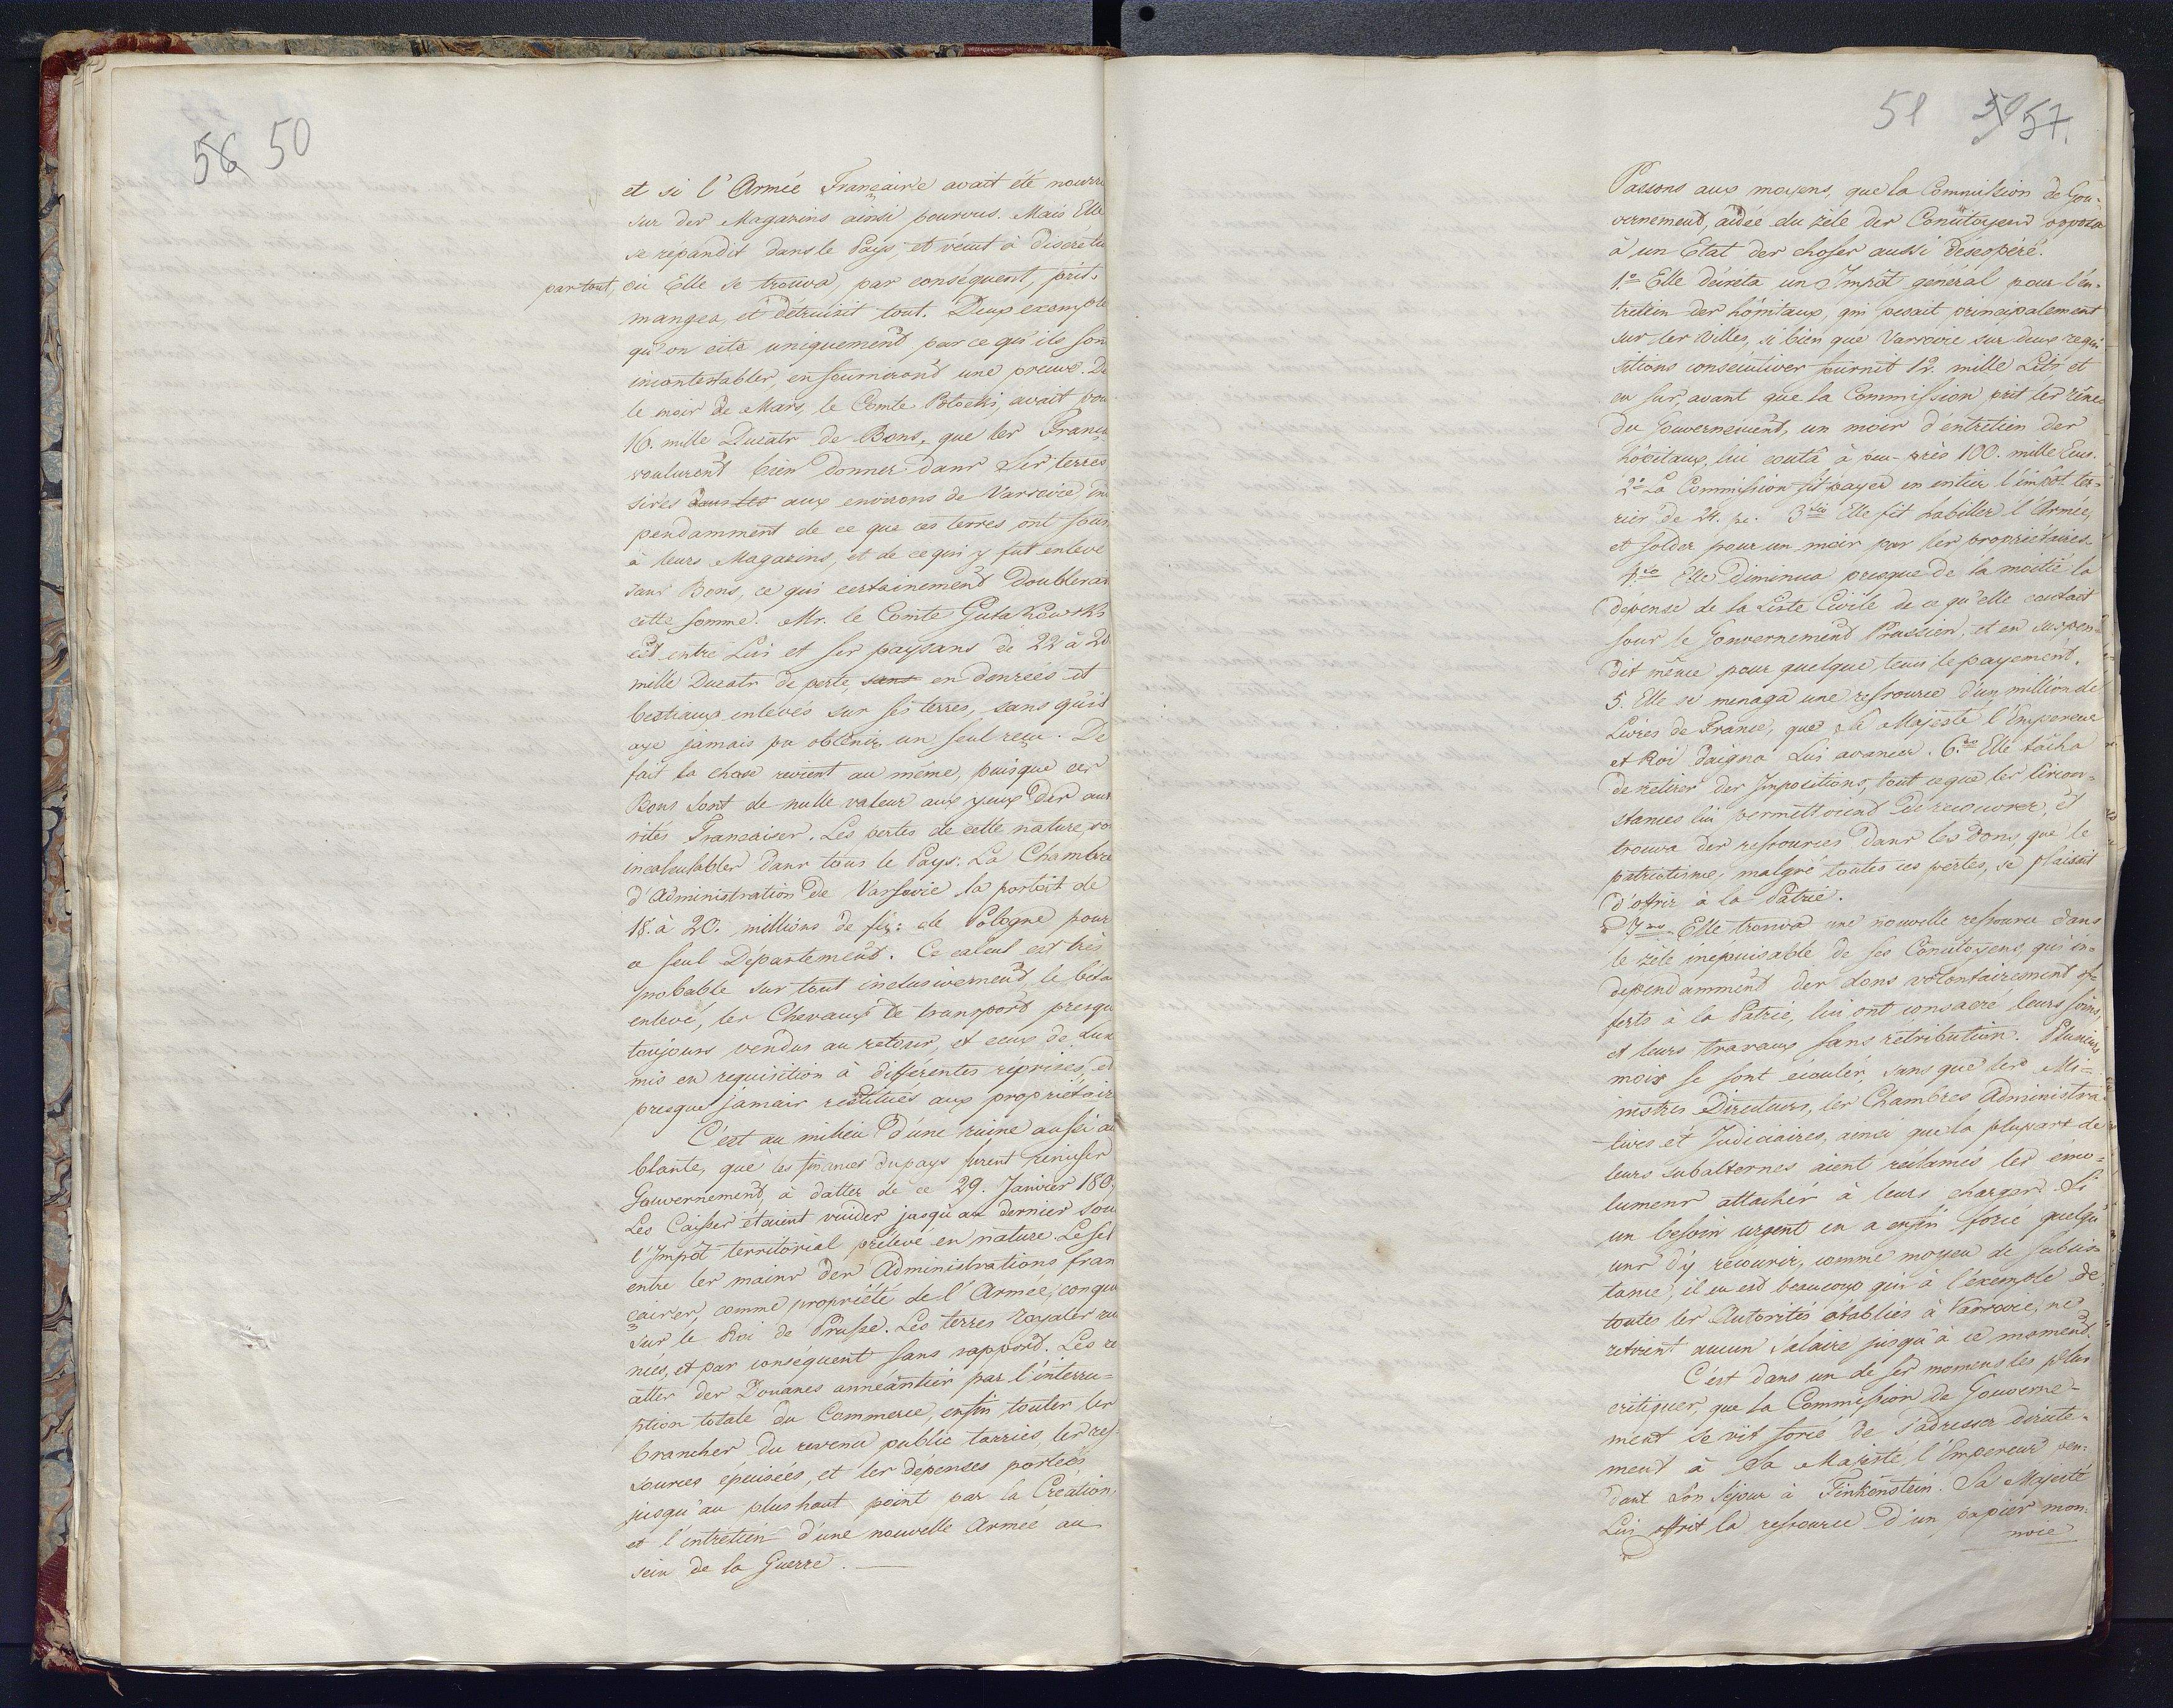 56 50
et si l'Armée Françaire avait été nourri
sur der Magazins ainsi pourvus. Mais Elle
se répandit dans le Pays, et vécut à discrétio
par tout, où Elle se trouva, par conséquent, prit,
mangea, et détruisit tout. Deux exemple
qu'on cite uniquement par ce qu'ils son
incontestabler, en fourniront une preuve. De
le moir de Mars, le Comte Potocki, avait pou
16. mille Ducatr de Bons, que ler França
voulurent bien donner danr ser terres
sises dans les aux environs de Varsovie in
pendamment de ce que ces terres ont four
à leurs Magazins, et de ce qui y fut enlevé
sans Bons, ce qui certainement doublerai
cette somme. Mr. le Comte Gutakowski
est entre Lui et ser paysans de 22 à 20
mille Ducatr de perte, sans en denrées et
bestiaux enlevés sur ses terres, sans qu'il
aye jamais pu obtenir un seul reçu. De
fait la chose revient au même, puisque cer
Bons sont de nulle valeur aux yeux der aut
rités Françaiser. Les pertes de cette nature, so
incalculabler danr tous le Pays. La Chambre
d'Administration de Varsovie la portait de
18. à 20. millions de flz: de Pologne pour
ce seul Département. Ce calcul est très
probable sur tout inclusivement le béta
enlevé, ler Chevaux de transport presqu
toujours vendus au retour, et ceux de Lux
mis en requisition à différentes réprises, et
presque jamair restitués aux propriétair
C'est au milieu d'une ruine aussi ac
blante, que les finances du pays furent remiser
Gouvernement, à datter de ce 29. Janvier 180
Les Caisser étaient vuider jusqu'au dernier sou
l'Impôt territorial prélevé en nature. Le sel
entre ler mainr der Administrations fran
çairer, comme propriété de l'Armée, conqui
sur le Roi de Prusse. Les terres Royaler rui
nées, et par conséquent sans rapport. Les re
cetter der Douanes annéantier par l'interru=
ption totale du Commerce, enfin touter ler
brancher du revenu public tarries, ler res=
sources épuisées, et ler dépenses portées
jusqu'au plus haut point par la Création,
et l'entretien d'une nouvelle Armée au
sein de la Guerre.
51 50 57.
Passons aux moyens, que la Commission de Gou=
vernement, aidée du zele der Concitoyens opposa
à un Etat der choser aussi desespéré.
1.º Elle décreta un Impôt général pour l'en=
tretien der hôpitaux, qui pesait principalement
sur ler villes, si bien que Varsovie sur deux requi
sitions consécutiver fournit 12. mille Lits et
en sur, avant que la Commission prit ler rênes
du Gouvernement, un moir d'entretien der
hôpitaux, lui couta à peu-près 100. mille Ecus.
2.º La Commission fit payer en entier l'impôt ter=
rier de 24. pc. 3.tio Elle fit habiller l'Armée,
et solder pour un moir par ler propriétaires.
4.to Elle diminua presque de la moitié la
dépense de la Liste Civile de ce qu'elle coutait
sour le Gouvernement Prussien, et en suspen=
dit même pour quelque tems le payement.
5. Elle se menaga une ressource d'un million de
Livres de France, que Sa Majesté l'Empereur
et Roi daigna Lui avancer. 6.to Elle tâcha
de retirer der Impositions, tout ce que ler Circon=
stances lui permettoient de recouvrer, et
trouva der ressources danr les dons, que le
patriotisme, malgré toutes ces pertes, se plaisait
d'offrir à la Patrie.
7.mo Elle trouva une nouvelle ressource dans
le zèle inépuisable de ses Concitoyens, qui in=
dépendamment der dons volontairement of=
ferts à la Patrie, lui ont consacré leurs soins,
et leurs travaux sans rétribution. Plusieurs
mois se sont écoulér, sans que les Mi=
nistres Directeurs, ler Chambres Administra=
tives et Judiciaires, ainsi que la plupart de
leurs subalternes aient réclamés les émo=
lumenr attachér à leurs charger. Si
un besoin urgent en a enfin forcé quelqu'
unr d'y recourir, comme moyen de subsis=
tance, il en est beaucoup qui à l'éxemple de
toutes ler Autorités établies à Varsovie, ne
retirent aucun Salaire jusqu'à ce moment.
C'est dans un de ser momens les plus
critiquer, que la Commission de Gouverne=
ment se vit forcé de s'adresser directe=
ment à Sa Majesté l'Empereur pen=
dant Son Séjour à Finkenstein. Sa Majesté
Lui offrit la ressource d'un papier mon=
noie